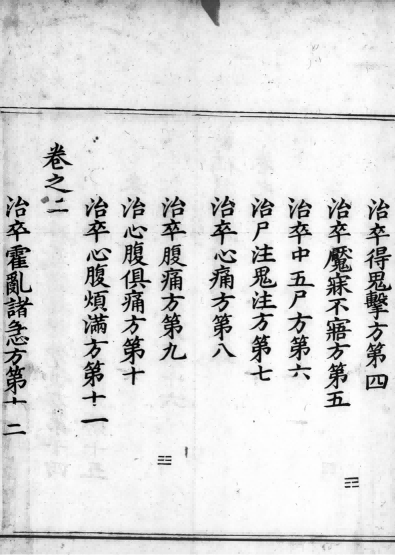 治卒得鬼擊方第四
治卒魘寐不寤方第五
治卒中五尸方第六
治尸注鬼注方第七
治卒心痛方第八
治卒腹痛方第九
治心腹俱痛方第十
治卒心腹煩滿方第十一
卷之二
治卒霍亂諸急方第十二